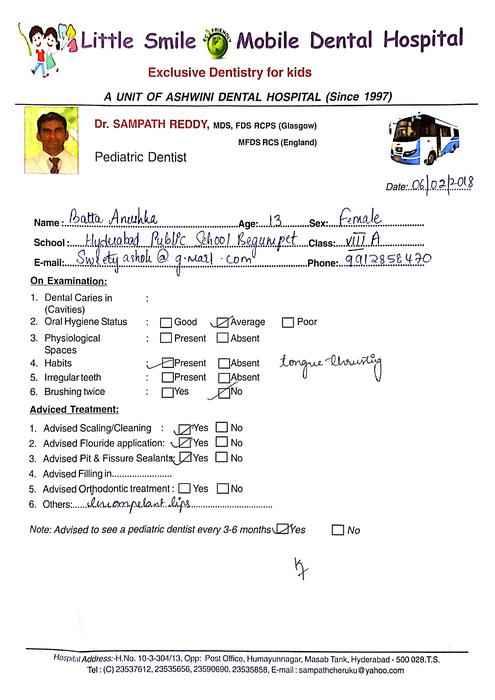 Little Smile ECO FRIENDLY Mobile Dental Hospital
Exclusive Dentistry for kids
A UNIT OF ASHWINI DENTAL HOSPITAL (Since 1997)
Dr. SAMPATH REDDY, MDS, FDS RCPS (Glasgow)
MFDS RCS (England)
Pediatric Dentist
Date: 06/02/2018
Name: Batta Anushka Age: 13 Sex: Female
School: Hyderabad Public School Begumpet Class: VIII A
E-mail: Sweetyashok@g.mail.com Phone: 9912858470
On Examination:
1. Dental Caries in :
(Cavities)
2. Oral Hygiene Status : Good Average Poor
3. Physiological : Present Absent
Spaces
4. Habits : Present Absent tongue thrusting
5. Irregular teeth : Present Absent
6. Brushing twice : Yes No
Adviced Treatment:
1. Advised Scaling/Cleaning : Yes No
2. Advised Flouride application: Yes No
3. Advised Pit & Fissure Sealants: Yes No
4. Advised Filling in......................
5. Advised Orthodontic treatment : Yes No
6. Others: Incompetant lips
Note: Advised to see a pediatric dentist every 3-6 months Yes No
Hospital Address:-H.No. 10-3-304/13, Opp: Post Office, Humayunnagar, Masab Tank, Hyderabad - 500 028.T.S.
Tel : (C) 23537612, 23535656, 23590690, 23535858, E-mail : sampathcheruku@yahoo.com